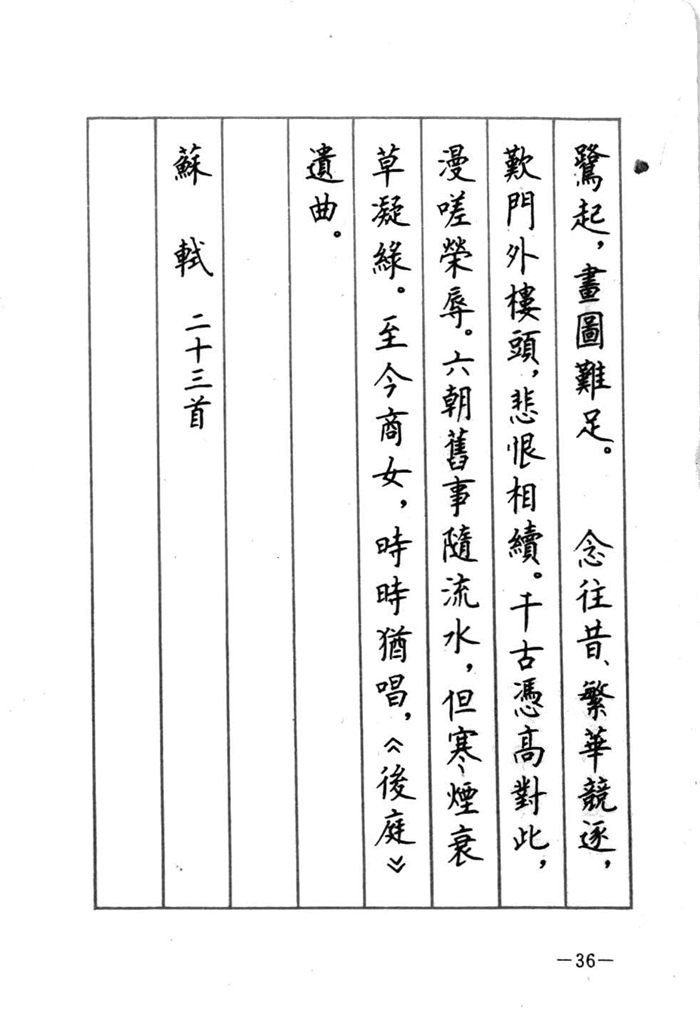 鷺起，畫圖難足。　念往昔、繁華競逐，
歎門外樓頭，悲恨相續。千古憑高對此，
漫嗟榮辱。六朝舊事隨流水，但寒煙衰
草凝綠。至今商女，時時猶唱，《後庭》
遺曲。
蘇　軾　二十三首
—36—